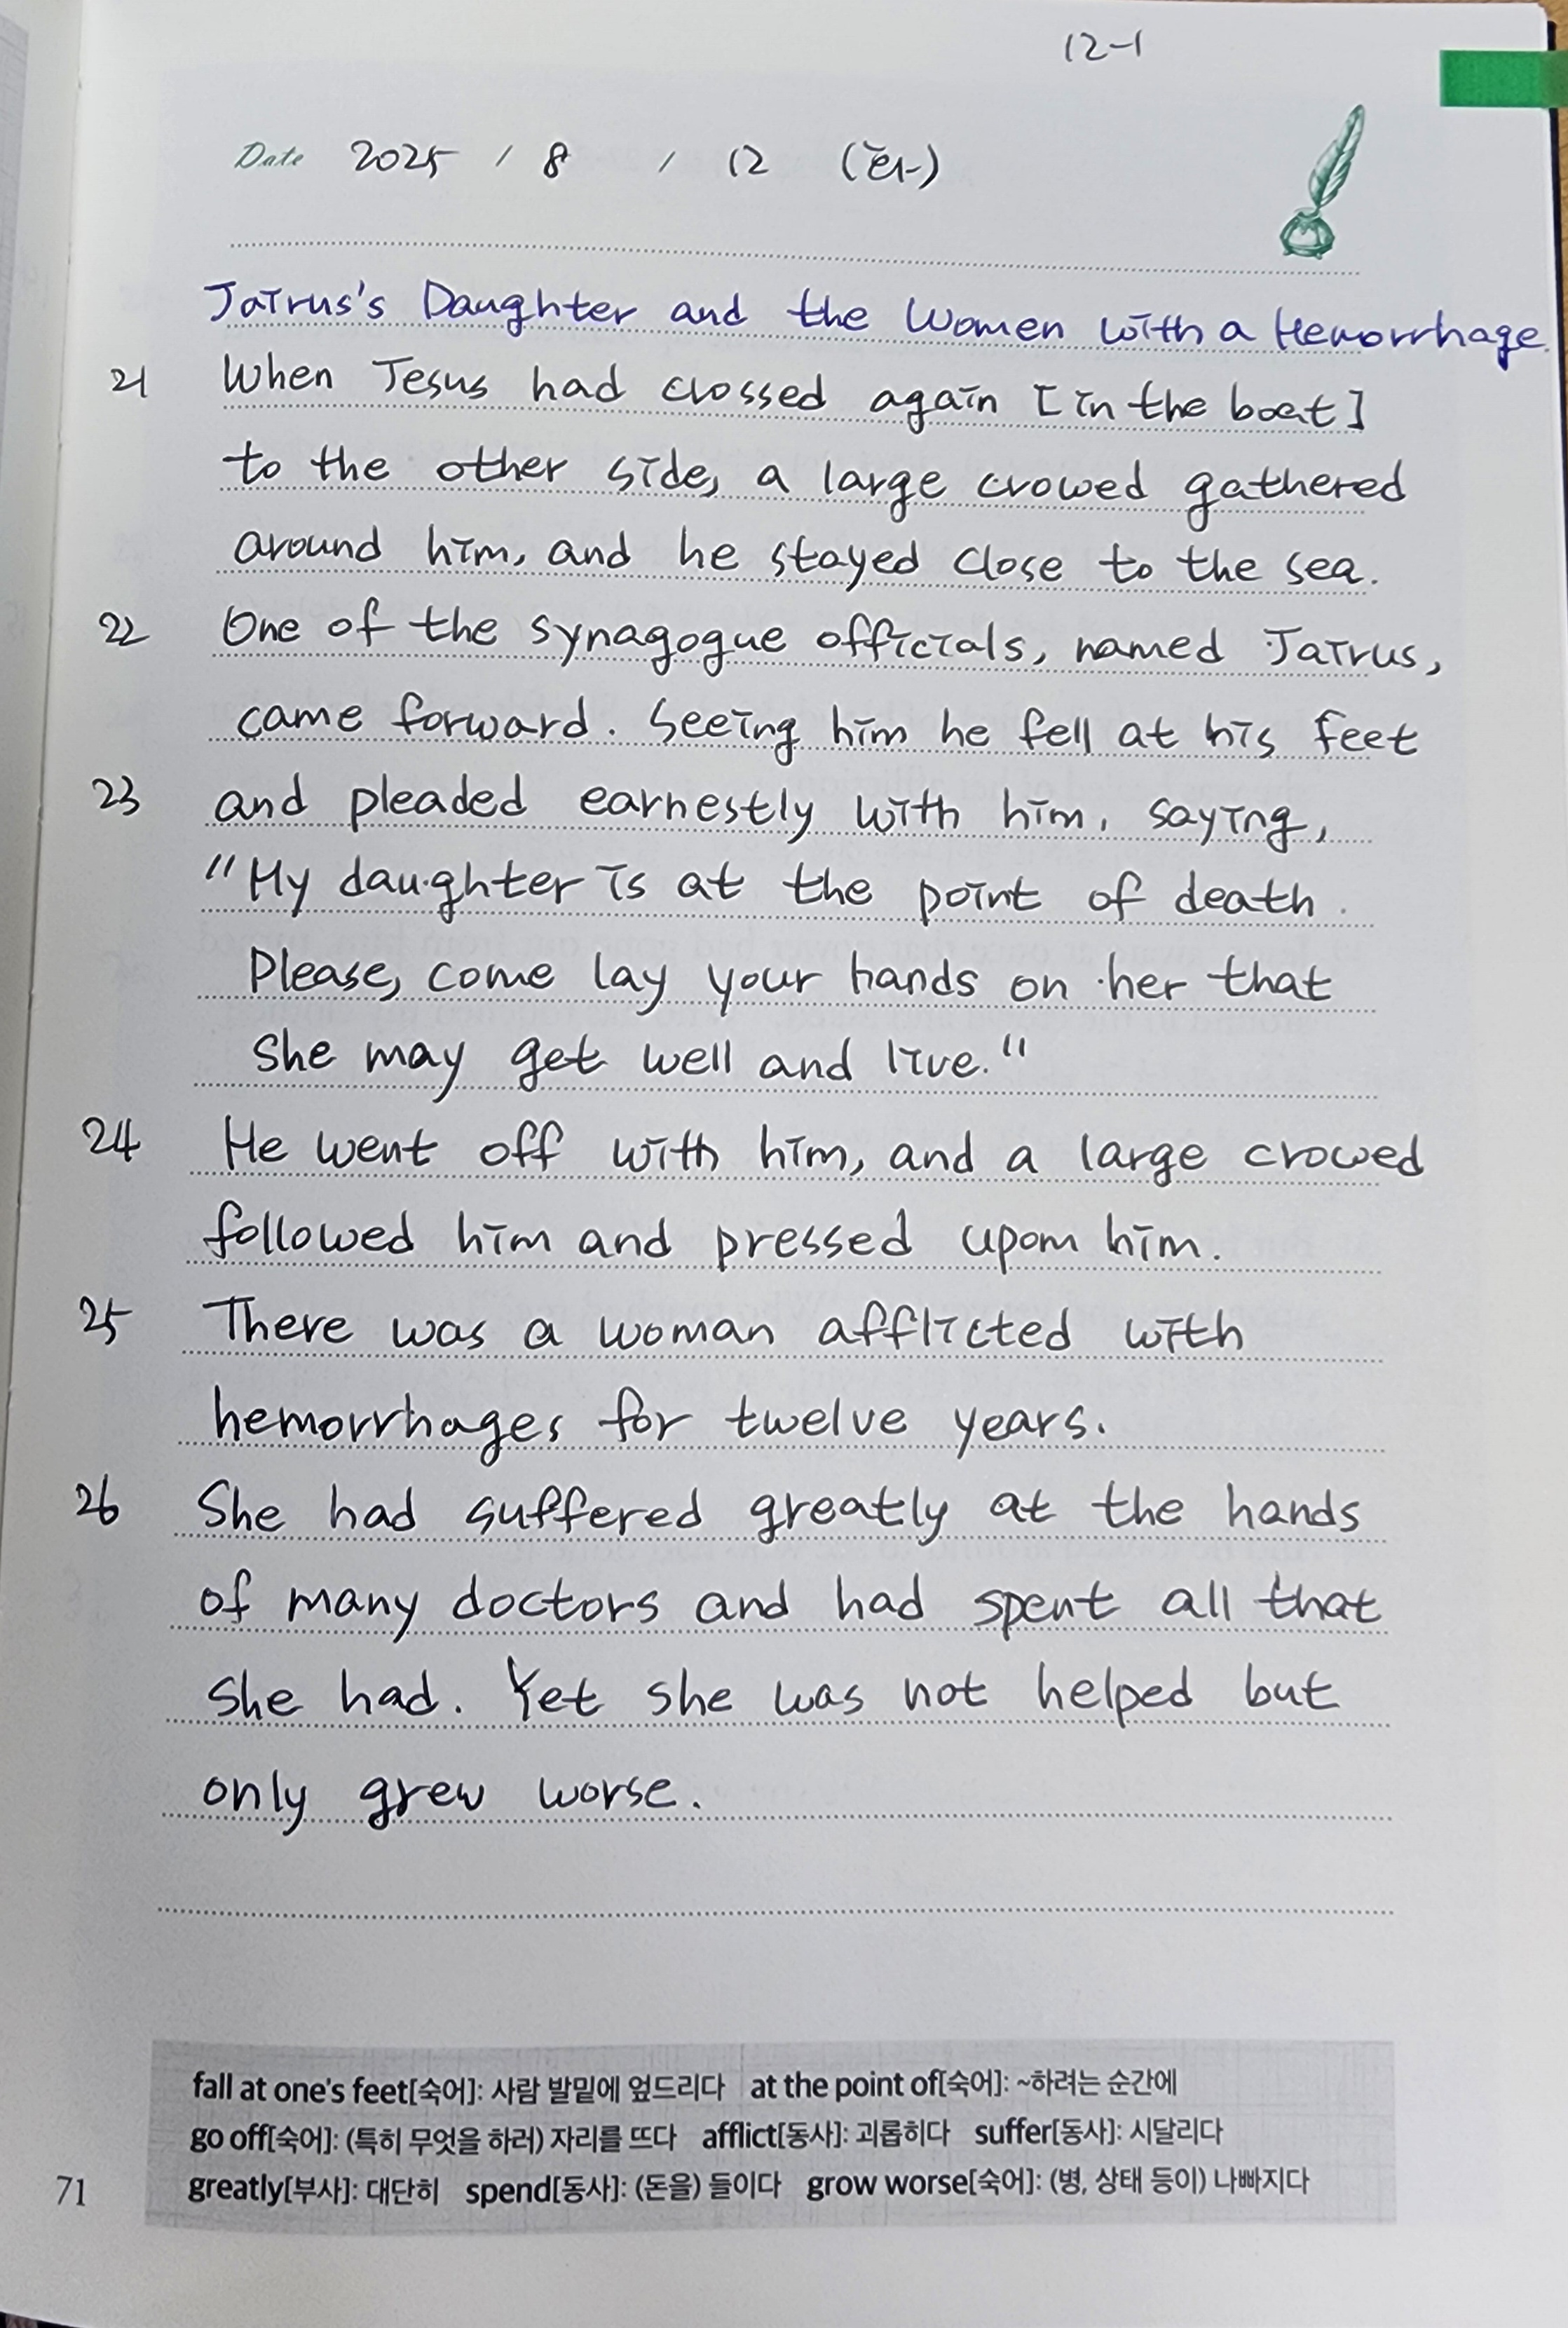 12-1
Date 2025 / 8 / 12 (화)
Jairus's Daughter and the Women with a Hemorrhage.
21 When Jesus had clossed again [in the boat]
to the other side, a large crowed gathered
around him, and he stayed close to the sea.
22 One of the synagogue officials, named Jairus,
came forward. Seeing him he fell at his feet
23 and pleaded earnestly with him, saying,
"My daughter is at the point of death.
Please, come lay your hands on her that
she may get well and live."
24 He went off with him, and a large crowed
followed him and pressed upon him.
25 There was a woman afflicted with
hemorrhages for twelve years.
26 She had suffered greatly at the hands
of many doctors and had spent all that
she had. Yet she was not helped but
only grew worse.
fall at one's feet[숙어]: 사람 발밑에 엎드리다 at the point of[숙어]: ~하려는 순간에
go off[숙어]: (특히 무엇을 하러) 자리를 뜨다 afflict[동사]: 괴롭히다 suffer[동사]: 시달리다
71 greatly[부사]: 대단히 spend[동사]: (돈을) 들이다 grow worse[숙어]: (병, 상태 등이) 나빠지다